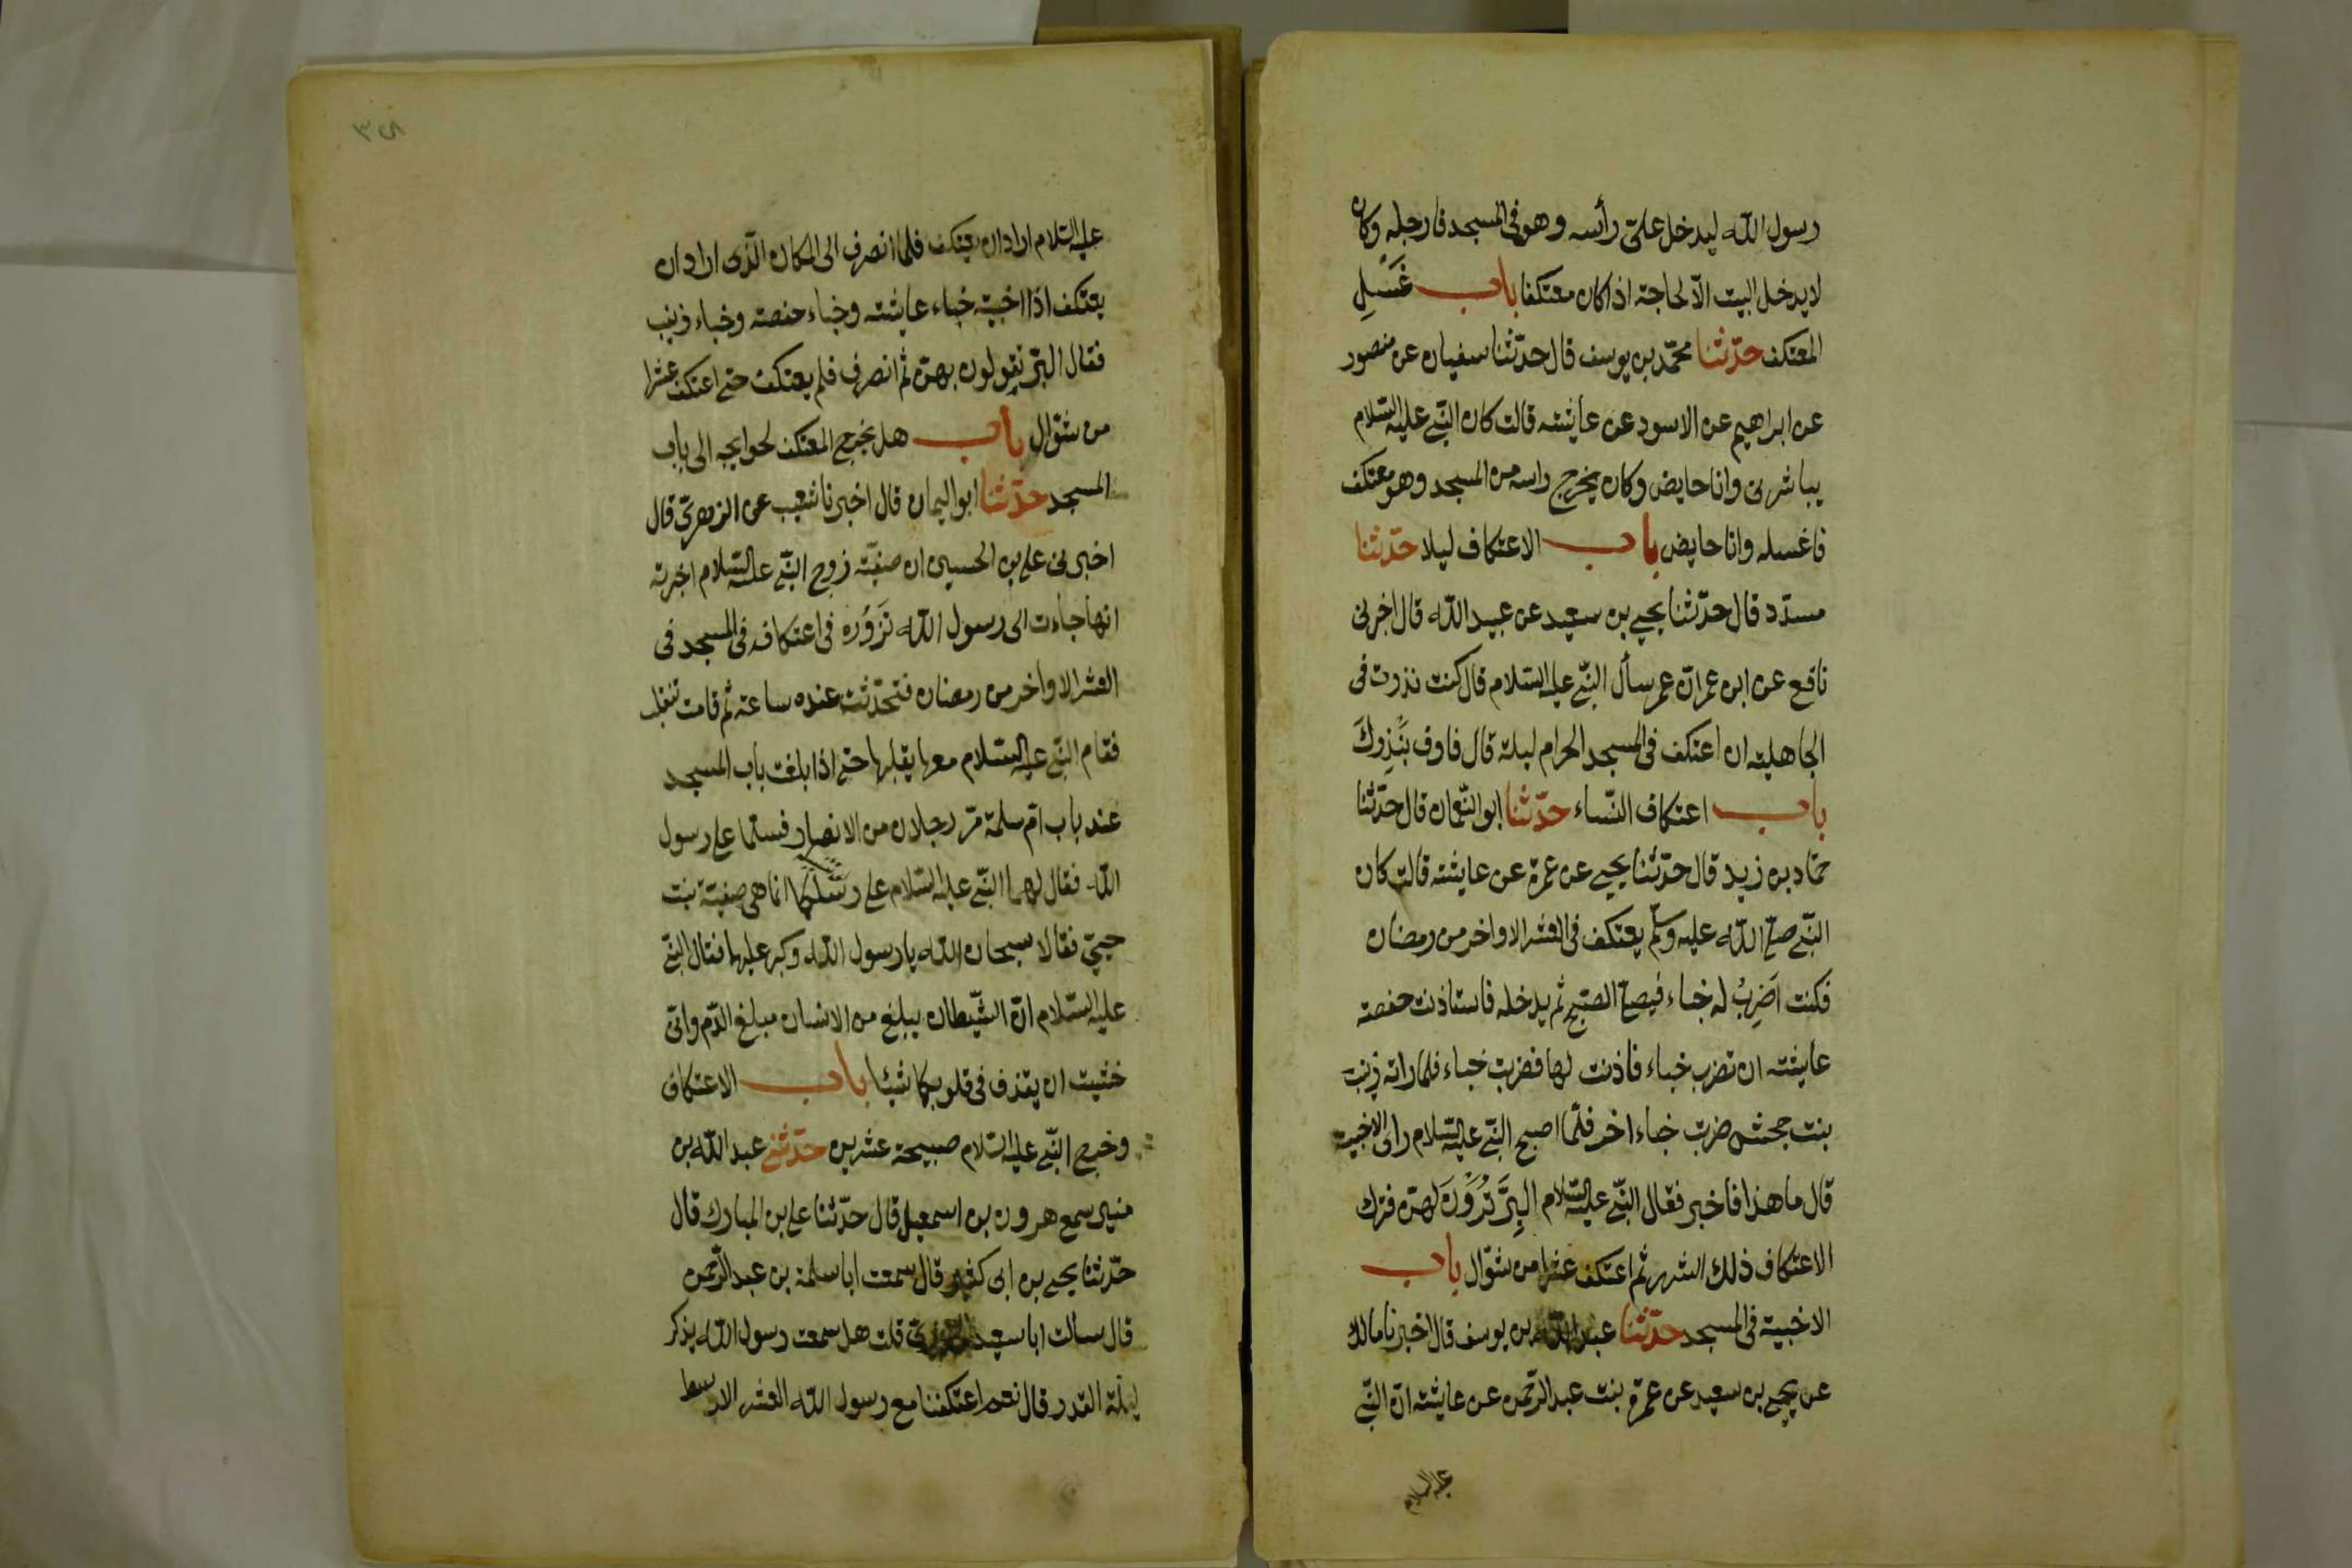 رسول الله ليدخل علىّ رأسه وهو فى المسجد فارجله وكان
لا يدخل البيت الاّ لحاجة اذا كان معتكفا باب غَسلِ
المعتكف حدّثنا محمّد بن يوسف قال حدّثنا سفيان عن منصور
عن ابراهيم عن الاسود عن عايشه قالت كان النبّى عليه السّلام
يباشرنى وانا حايض وكان يخرج راسه من المسجد وهو معتكف
فاغسله وانا حايض باب الاعتكاف ليلا حدّثنا
مسدّد قال حدّثنا يحيى بن سعيد عن عبيد الله قال اخبرنى
نافع عن ابن عمر انّ عمر سأل النبّى عليه السّلام قال كنت نذرت فى
الجاهلية ان اعتكف فى المسجد الحرام ليلة قال فاوف بنَذِرِكَ
باب اعتكاف النّساء حدّثنا ابو النّعمان قال حدّثنا
حمّاد بن زيد قال حدّثنا يحيى عن عمرة عن عايشه قالت كان
النبّى صلّى الله عليه وسلّم يعتكف فى العشر الاواخر من رمضان
فكنت اَضرِبُ له خباء فيصلى الصّبح ثم يدخله فاستاذنت حفصه
عايشه ان تضرب خباء فاذنت لها فضربت خباء فلما راته زينب
بنت جحش ضربت خباء اخر فلّما اصبح النبّى عليه السّلام راى الاخبية
قال ما هذا فاخبر فقال النبّى عليه السّلام البِرَّ تُرَوْنَ لهنّ فترك
الاعتكاف ذلك الشهر ثم اعتكف عشرا من شوّال باب
الاخبية فى المسجد حدّثنا عبد الله بن يوسف قال اخبرنا مالك
عن يحيى بن سعيد عن عمرة بنت عبد الرّحمن عن عايشه انّ النبّى
عليه السلام
عليه السّلام اراد ان يعتكف فلما انصرف الى المكان الّذى اراد ان
يعتكف اذا اخبية خباء عايشه وخباء حفصه وخباء زينب
فقال البرّ تقولون بهنّ ثم انصرف فلم يعتكف حتى اعتكف عشرا
من شوّال باب هل يخرج المعتكف لحوايجه الى باب
المسجد حدّثنا ابو اليمان قال اخبرنا شعيب عن الزهرىّ قال
اخبرنى على بن الحسين ان صفيّة زوج النبّى عليه السّلام اخبرته
انها جاءت الى رسول الله تَزَوُره فى اعتكافه فى المسجد فى
العشر الاواخر من رمضان فتحدّثت عنده ساعة ثم قامت تنقلب
فقام النبّى عليه السّلام معها يقلبها حتى اذا بلغت باب المسجد
عند باب امّ سلمة مرّ رجلان من الانصار فسلّما على رسول
الله فقال لهما النبّى عليه السّلام على رسلكما انما هى صفيّة بنت
حيىّ فقالا سبحان الله يا رسول الله وكبر عليهما فقال النبّى
عليه السّلام انّ الشّيطان يبلغ من الانسان مبلغ الدّم وانّى
خشيت ان يقذف فى قلوبكما شيئا باب الاعتكاف
وخرج النبّى عليه السّلام صبيحة عشرين حدّثنى عبد الله بن
منير سمع هرون بن اسمعيل قال حدّثنا على بن المبارك قال
حدّثنا يحيى بن ابى كثير قال سمعت ابا سلمة بن عبد الرّحمن
قال سالت ابا سعيد الخدرىّ قلت هل سمعت رسول الله يذكر
ليلة القدر قال نعم اعتكفنا مع رسول الله العشر الاوسط